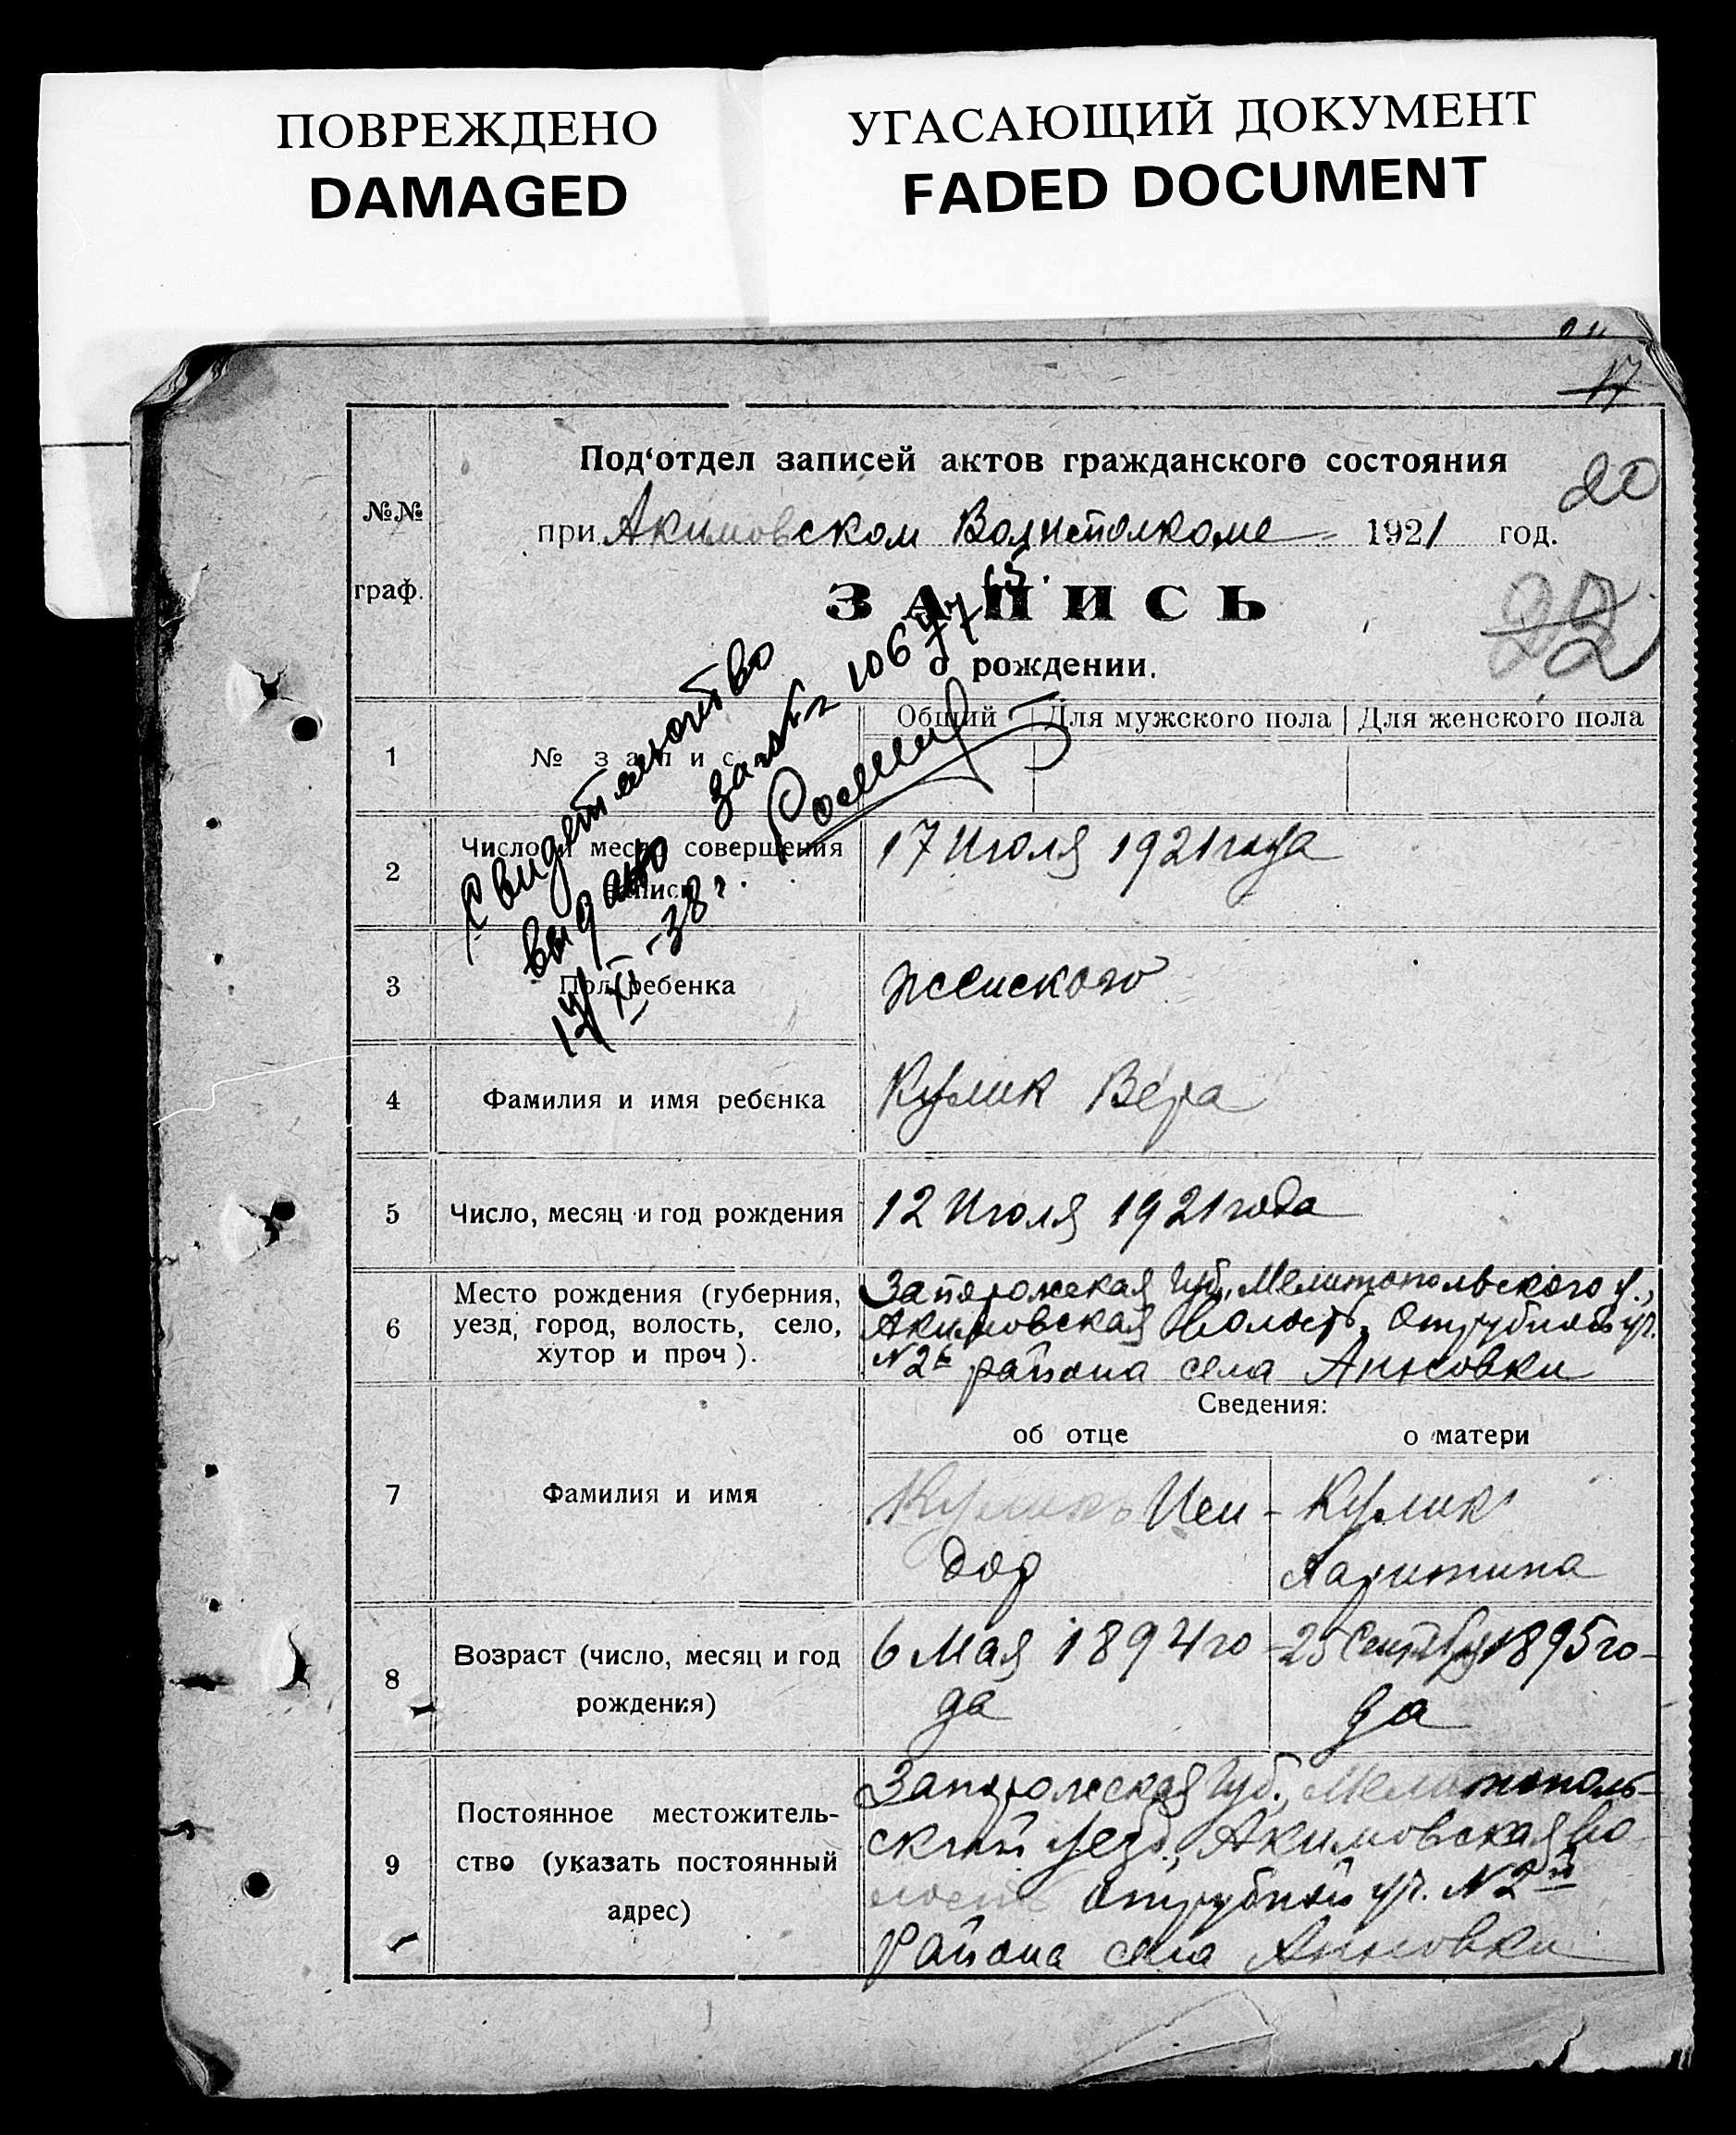 ПОВРЕЖДЕНО
DAMAGED
УГАСАЮЩИЙ ДОКУМЕНТ
FADED DOCUMENT
17
Под‘отдел записей актов гражданского состояния
20
№№
граф.
при Акимовском Волисполкоме 1921 год.
ЗАПИСЬ
о рождении.
22
Свидетельство
выдано
12/XI-38 г.
1 № записи Общий Для мужского пола Для женского пола
2 Число и месяц совершения
записи
17 Июля 1921 года
3 Пол ребенка женского
4 Фамилия и имя ребенка Кулик Вера
5 Число, месяц и год рождения 12 Июля 1921 года
6 Место рождения (губерния,
уезд, город, волость, село,
хутор и проч).
Запорожская Губ., Мелитопольского у.,
Акимовская волость, Отрубной уч.
N2й района села Анновки
Сведения:
об отце о матери
7 Фамилия и имя
Куликъ Иси-
дор
Кулик
Харитина
8 Возраст (число, месяц и год
рождения)
6 Мая 1894 го-
да
25 Сентября 1895 го-
да
9 Постоянное местожитель-
ство (указать постоянный
адрес)
Запорожская Губ., Мелитополь-
ский уезд, Акимовская во-
лость Отрубной уч. N2й
района села Анновки